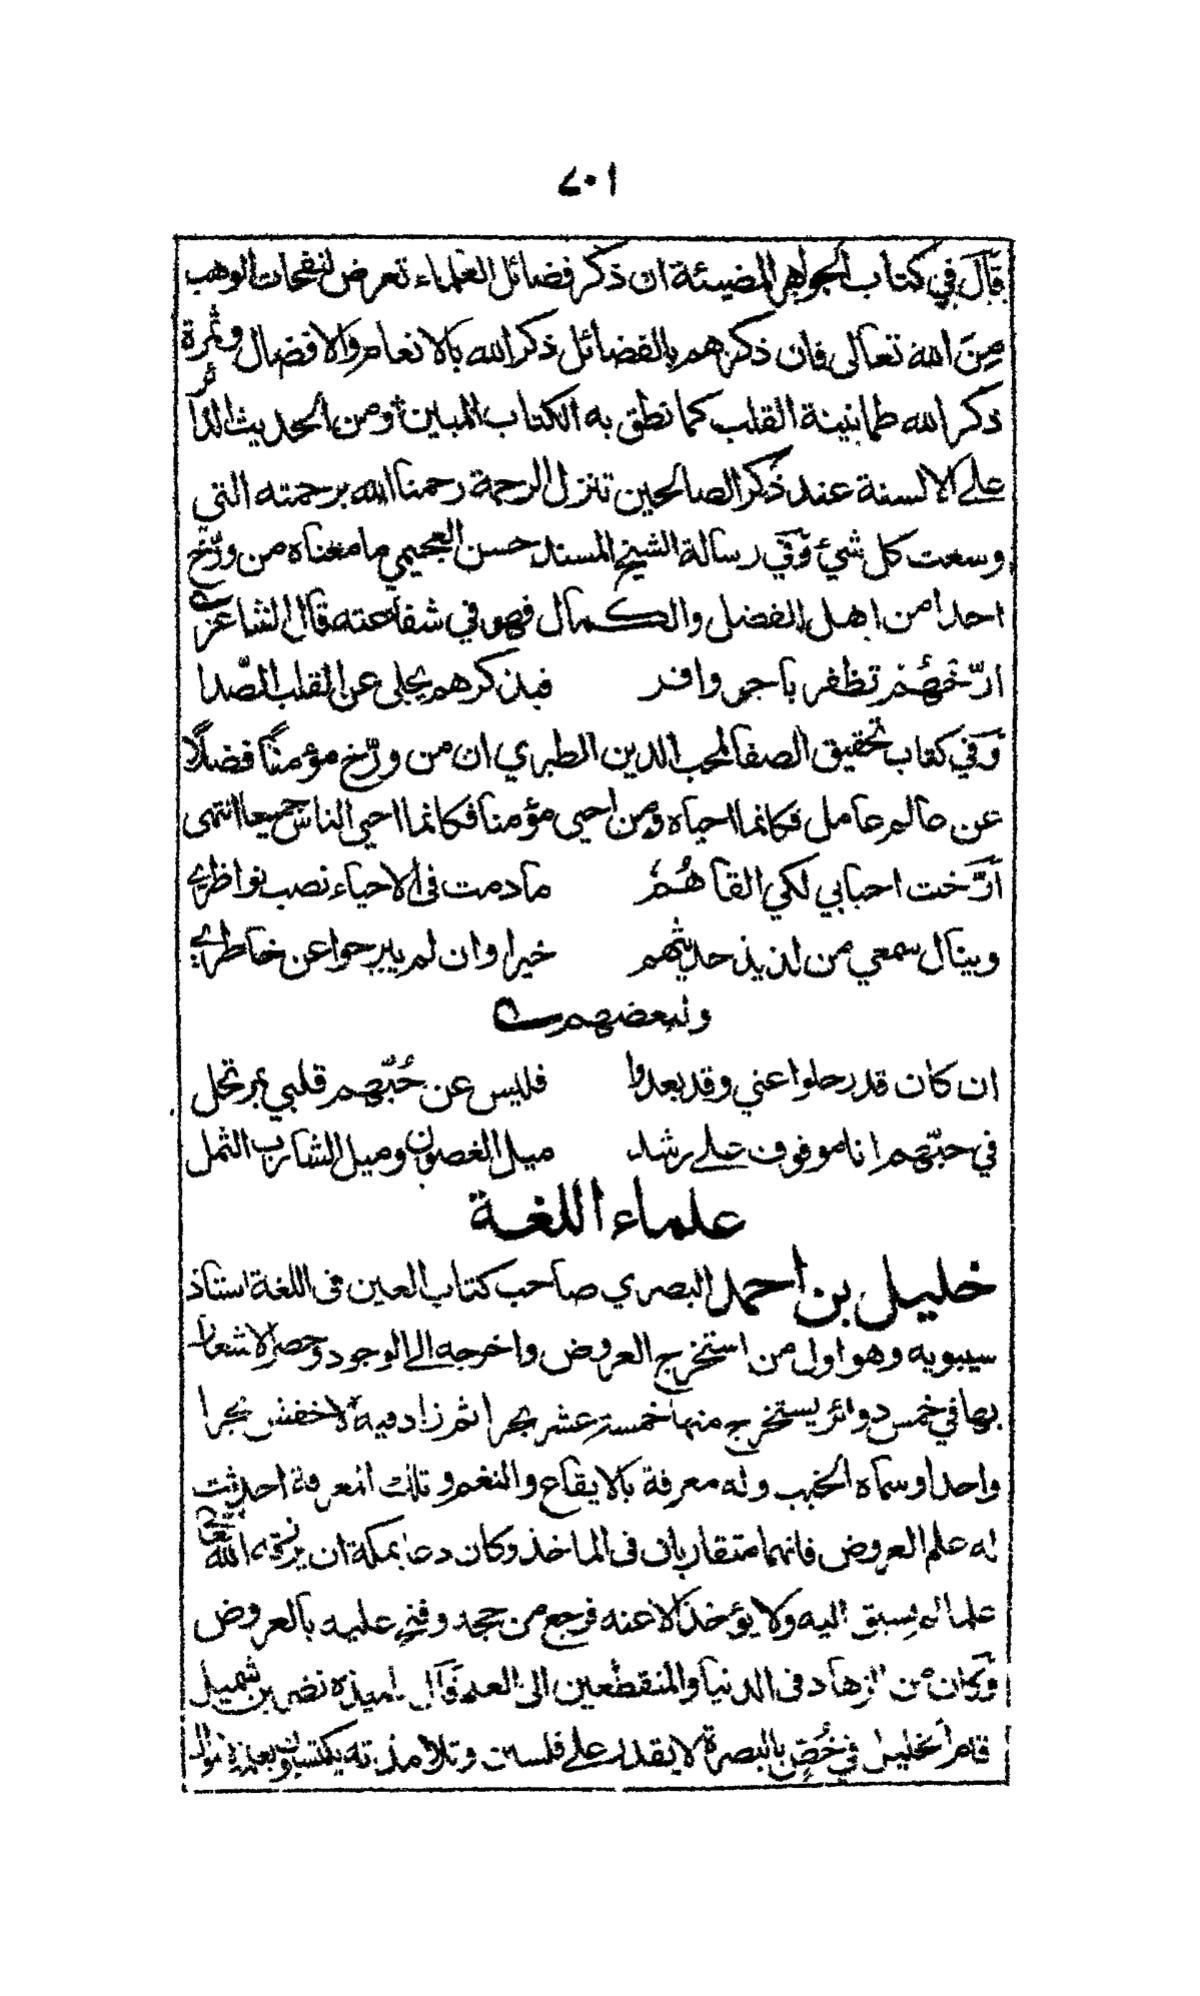 ٧٠١
قال في كتاب الجواهر المضيئة ان ذكر فضائل العلماء تعرض لنفحات الوهب
من الله تعالى فان ذكرهم بالفضائل ذكر الله بالانعام والافضال وثمرة
ذكر الله طمانينة القلب كما نطق به الكتاب المبين ومن الحديث الدائر
على الالسنة عند ذكر الصالحين تنزل الرحمة رحمنا الله برحمته التي
وسعت كل شيئ وفي رسالة الشيخ المسند حسن العجيمي ما معناه من ورّخ
احدا من اهل الفضل والكمال فهو في شفاعته قال الشاعر
ارّخهُم تظفر باجر وافر فبذكرهم يجلى عن القلب الصّدا
وفي كتاب تحقيق الصفا لمحب الدين الطبري ان من ورّخ مؤمنًا فضلًا
عن عالم عامل فكانما احياه ومن احيى مؤمنا فكانما احيى الناس جميعا انتهى
ارّخت احبابي لكي القاهُمُ ما دمت فى الاحياء نصب نواظري
وينال سمعي من لذيذ حديثهم خيرا وان لم يبرحوا عن خاطري
ولبعضهم
ان كان قد رحلوا عني وقد بعدوا فليس عن حُبّهم قلبي بمرتحل
في حبّهم انا موقوف على رشد ميل الغصون وميل الشارب الثمل
علماء اللغة
خليل بن احمد البصري صاحب كتاب العين فى اللغة استاذ
سيبويه وهو اول من استخرج العروض واخرجه الى الوجود وحصر الاشعار
بها في خمس دوائر يستخرج منها خمسة عشر بحرا ثم زاد فيه الاخفش بحرا
واحدا وسماه الخبب وله معرفة بالايقاع والنغم وتلك المعرفة احدثت
له علم العروض فانهما متقاربان فى الماخذ وكان دعا بمكة ان يرزقه الله تعالى
علما لم يسبق اليه ولا يؤخذ الا عنه فرجع من حجه وفتح عليه بالعروض
وكان من الزهاد فى الدنيا والمنقطعين الى العلم قال تلميذه نضر بن شميل
قام الخليل في خُصٍّ بالبصرة لا يقدر على فلسين وتلامذته يكتسبون بعلمه